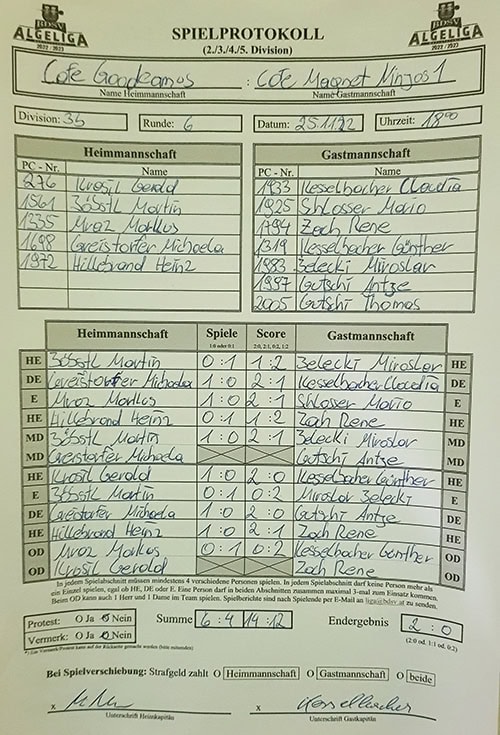 BDSV
ALGELIGA
2022 / 2023
SPIELPROTOKOLL
(2./3./4./5. Division)
BDSV
ALGELIGA
2022 / 2023
Cafe Goodeamus : Cafe Magnet Minjos 1
Name Heimmannschaft Name Gastmannschaft
Division: 3b Runde: 6 Datum: 25.11.22 Uhrzeit: 18:00
Heimmannschaft
PC - Nr. Name
276 Krosil Gerald
1561 Bösstl Martin
1235 Mraz Markus
1698 Greistorfer Michaela
1972 Hillebrand Heinz
Gastmannschaft
PC - Nr. Name
1933 Kesselbacher Claudia
1925 Shlosser Mario
1794 Zach Rene
1319 Kesselbacher Günther
1983 Zelecki Miroslav
1997 Gutschi Antze
2005 Gutschi Thomas
Heimmannschaft Spiele Score Gastmannschaft
1:0 oder 0:1 2:0, 2:1, 0:2, 1:2
HE Bösstl Martin 0:1 1:2 Zelecki Miroslav HE
DE Greistorfer Michaela 1:0 2:1 Kesselbacher Claudia DE
E Mraz Markus 1:0 2:1 Shlosser Mario E
HE Hillebrand Heinz 0:1 1:2 Zach Rene HE
MD Bösstl Martin 1:0 2:1 Zelecki Miroslav MD
MD Greistorfer Michaela Gutschi Antze MD
HE Krosil Gerald 1:0 2:0 Kesselbacher Günther HE
E Bösstl Martin 0:1 0:2 Miroslav Zelecki E
DE Greistorfer Michaela 1:0 2:0 Gutschi Antze DE
HE Hillebrand Heinz 1:0 2:1 Zach Rene HE
OD Mraz Markus 0:1 0:2 Kesselbacher Günther OD
OD Krosil Gerald Zach Rene OD
In jedem Spielabschnitt müssen mindestens 4 verschiedene Personen spielen. In jedem Spielabschnitt darf keine Person mehr als
ein Einzel spielen, egal ob HE, DE oder E. Eine Person darf in beiden Abschnitten zusammen maximal 3-mal zum Einsatz kommen.
Beim OD kann auch 1 Herr und 1 Dame im Team spielen. Spielberichte sind nach Spielende per E-Mail an liga@bdsv.at zu senden.
Protest: O Ja O Nein Summe 6:4 14:12 Endergebnis 2 : 0
Vermerk: O Ja O Nein (2:0 od. 1:1 od. 0:2)
Bei Spielverschiebung: Strafgeld zahlt O Heimmannschaft O Gastmannschaft O beide
x x
Unterschrift Heimkapitän Unterschrift Gastkapitän